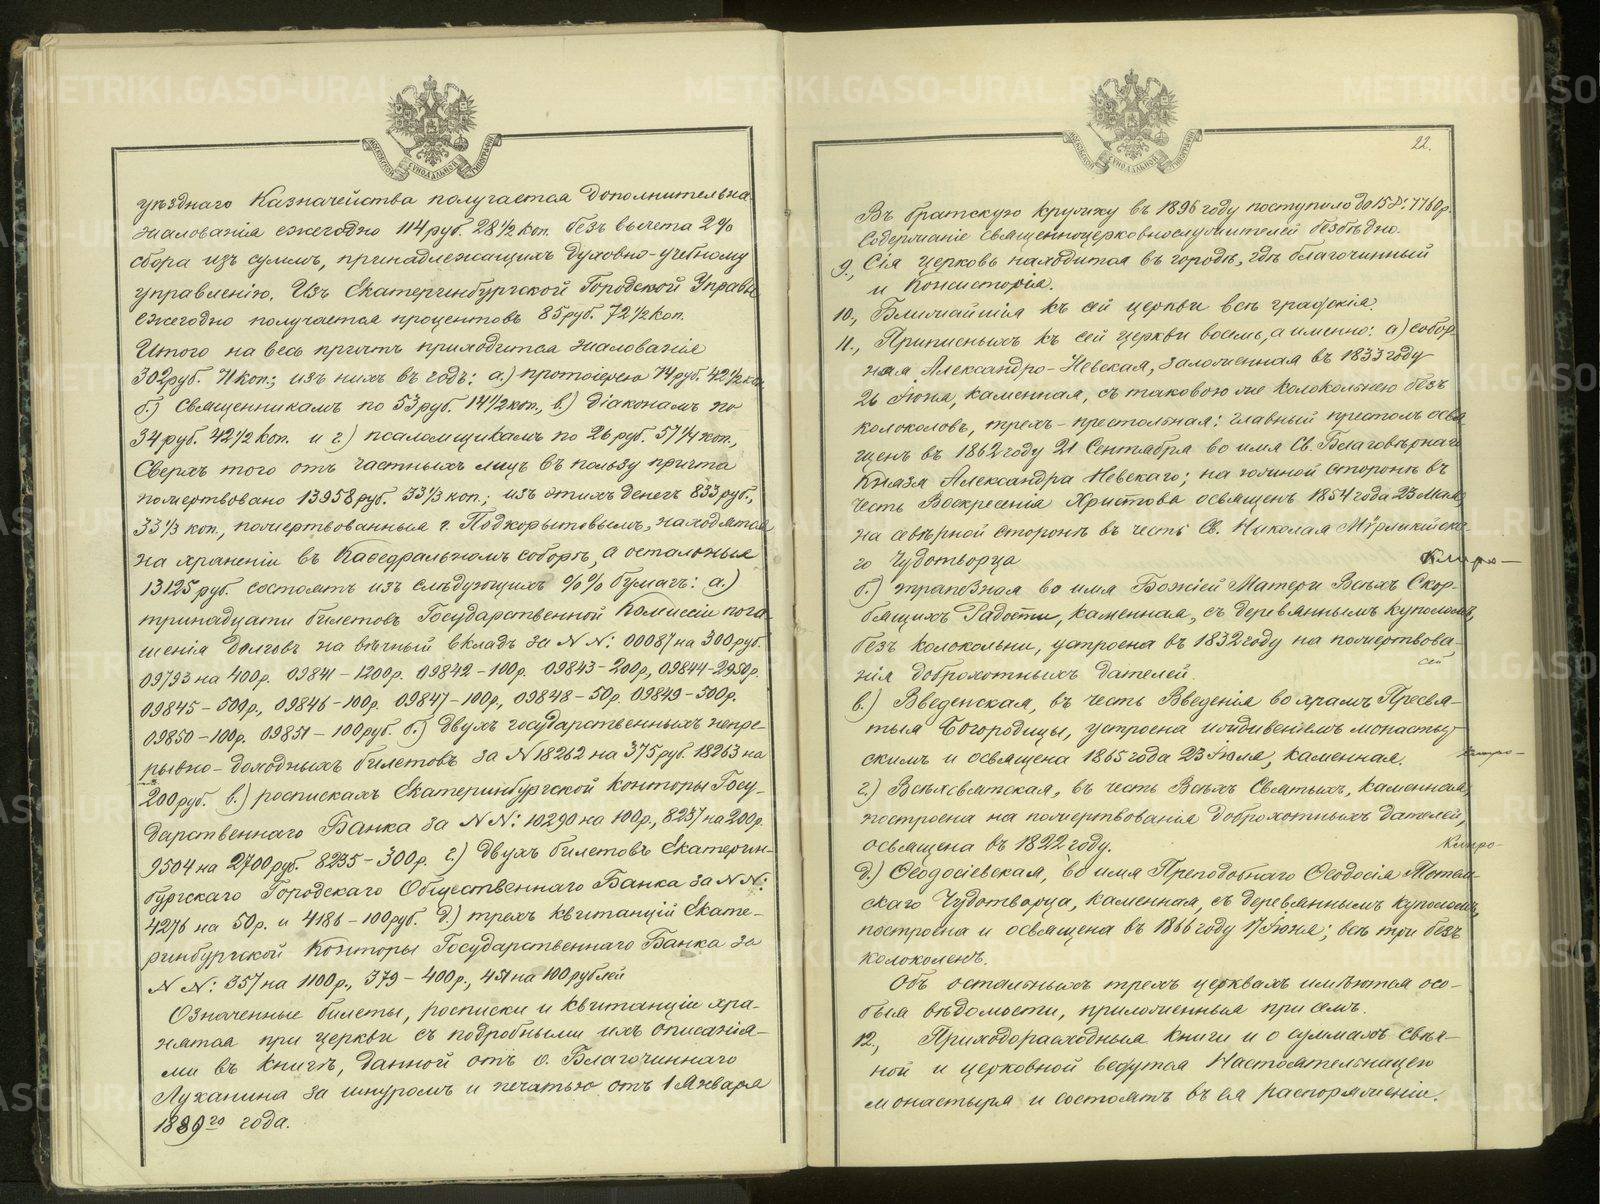 МОСКОВСКОЙ СѴНОДАЛЬНОЙ ТИПОГРАФІИ
уѣзднаго Казначейства получается дополнительна
жалованія ежегодно 114 руб. 28 1/2 коп. безъ вычета 2%
сбора изъ суммъ, принадлежащихъ духовно-учебному
управленію. Изъ Екатеринбургской Городской Управы
ежегодно получается процентовъ 85 руб. 72 1/2 коп.
Итого на весь причтъ приходится жалованія
302 руб. 71 коп.; изъ нихъ въ годъ: а.) протоіерею 74 руб. 42 1/2 коп.
б.) священникамъ по 53 руб. 14 1/2 коп., в.) діаконамъ по
34 руб. 42 1/2 коп. и г.) псаломщикамъ по 26 руб. 57 1/4 коп.,
Сверхъ того отъ частныхъ лицъ въ пользу причта
пожертвовано 13958 руб. 33 1/3 коп.; изъ этихъ денегъ 833 руб.,
33 1/3 коп., пожертвованныя г. Подкорытовымъ, находятся
на храненіи въ Каѳедральномъ соборѣ, а остальные
13125 руб. состоятъ изъ слѣдующихъ %% бумагъ: а.)
тринадцати билетовъ Государственной Комиссіи пога-
шенія долговъ на вѣчный вкладъ за NN: 00087 на 300 руб.
09793 на 400 р. 09841 - 1200 р. 09842 - 100 р. 09843 - 200 р, 09844 - 2950 р.
09845 - 500 р., 09846 - 100 р. 09847 - 100 р., 09848 - 50 р. 09849 - 500 р.
09850 - 100 р. 09851 - 100 руб. б.) двухъ государственныхъ непре-
рывно-доходныхъ билетовъ за N 18262 на 375 руб. 18263 на
200 руб. в.) роспискахъ Екатеринбургской Конторы Госу-
дарственнаго Банка за NN: 10290 на 100 р., 8237 на 200 р.
9504 на 2700 руб. 8235 - 300 р. г.) двухъ билетовъ Екатерин-
бургскаго Городскаго Общественнаго Банка за NN:
4276 на 50 р. и 4186 - 100 руб. д.) трехъ квитанцій Екате-
ринбургской Конторы Государственнаго Банка за
NN: 357 на 1100 р., 379 - 400 р., 451 на 100 рублей
Означенные билеты, росписки и квитанціи хра-
нятся при церкви съ подробными ихъ описанія-
ми въ книгѣ, данной отъ о. Благочиннаго
Луканина за шнуромъ и печатью отъ 1 Января
1889го года.
МОСКОВСКОЙ СѴНОДАЛЬНОЙ ТИПОГРАФІИ
22.
Въ братскую кружку въ 1896 году поступило до
Содержаніе священноцерковнослужителей безбѣдно.
9., Сія церковь находится въ городѣ, гдѣ благочинный
и Консисторія.
10., Ближайшія къ сей церкви всѣ градскія.
11., Приписныхъ къ сей церкви восемь, а именно: а.) собор-
ная Александро-Невская, заложенная въ 1833 году
26 Іюня, каменная, съ таковою же колокольнею безъ
колоколовъ, трехъ-престольная: главный престолъ освя-
щенъ въ 1862 году 21 Сентября во имя Св. Благовѣрнаго
Князя Александра Невскаго; на южной сторонѣ въ
честь Воскресенія Христова освященъ 1854 года 23 Мая,
на сѣверной сторонѣ въ честь Св. Николая Мѵрликійска-
го Чудотворца
б.) трапезная во имя Божіей Матери Всѣхъ Скор-
бящихъ Радости, каменная, съ деревяннымъ куполомъ,
безъ колокольни, устроена въ 1832 году на пожертвова-
нія доброхотныхъ дателей.
в.) Введенская, въ честь Введенія во храмъ Пресвя-
тыя Богородицы, устроена иждивеніемъ монастыр-
скимъ и освящена 1865 года 23 Іюля, каменная.
г.) Всѣхсвятская, въ честь Всѣхъ Святыхъ, каменная,
построена на пожертвованія доброхотныхъ дателей,
освящена въ 1822 году.
д.) Ѳеодосіевская, во имя Преподобнаго Ѳеодосія Тотем-
скаго Чудотворца, каменная, съ деревяннымъ куполомъ,
построена и освящена въ 1866 году 17 Іюня; всѣ три безъ
колоколенъ.
Объ остальныхъ трехъ церквахъ имѣются осо-
быя вѣдомости, приложенныя при семъ.
12., Приходорасходныя книги и о суммахъ свѣч-
ной и церковной ведутся Настоятельницею
монастыря и состоятъ въ ея распоряженіи.
METRIKI.GASO-URAL.RU